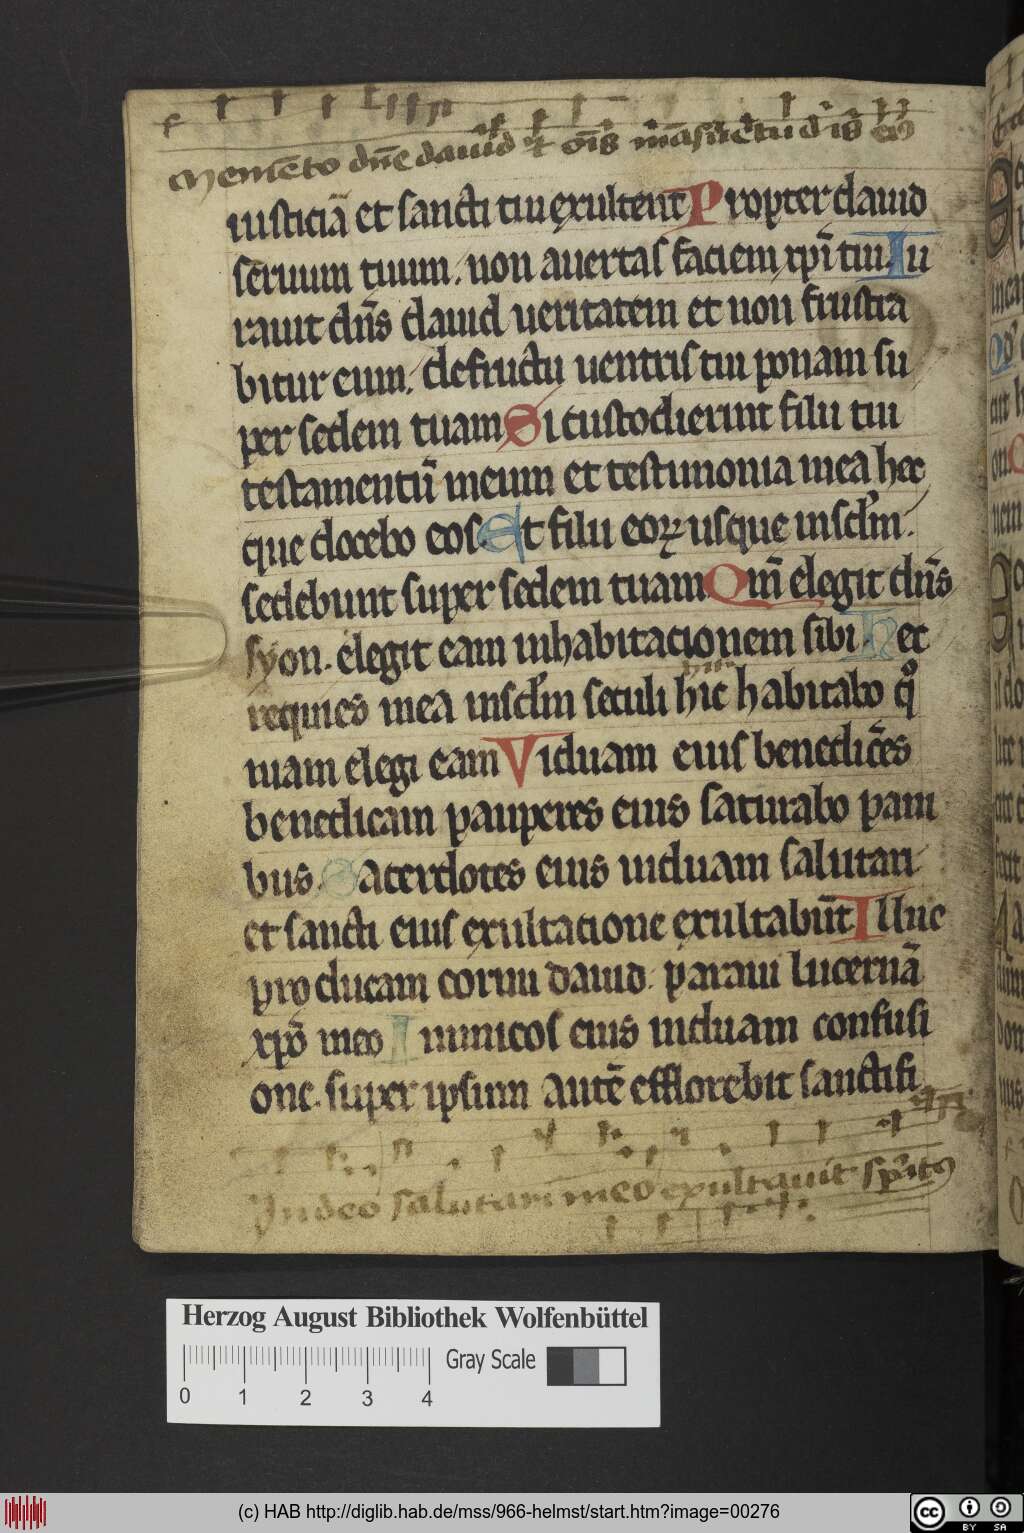 Memēto dn̄e dauid ⁊ oīs māsuetudīs eiꝰ
iusticiā et sancti tui exultent Propter dauid
seruum tuum. non auertas faciem xp̄i tui. Iu
rauit dn̄s dauid ueritatem et non frustra
bitur eum. de fructu uentris tui ponam su
per sedem tuam Si custodierint filii tui
testamentū meum et testimonia mea hec
que docebo eos. Et filii eoꝝ usque in sclm̄.
sedebunt super sedem tuam Qm̄ elegit dn̄s
syon. elegit eam inhabitacionem sibi Hec
requies mea in sclm̄ seculi hic habitabo qͦ
niam elegi eam Viduam eius benedicēs
benedicam pauperes eius saturabo pani
bus. Sacerdotes eius induam salutari
et sancti eius exultacione exultabūt Illuc
producam cornu dauid. paraui lucernā
xpō meo Inimicos eius induam confusi
one. super ipsum autē efflorebit sanctifi
In deo salutari meo exultauit sp̄ritꝰ
Herzog August Bibliothek Wolfenbüttel
Gray Scale
0 1 2 3 4
(c) HAB http://diglib.hab.de/mss/966-helmst/start.htm?image=00276
cc BY SA